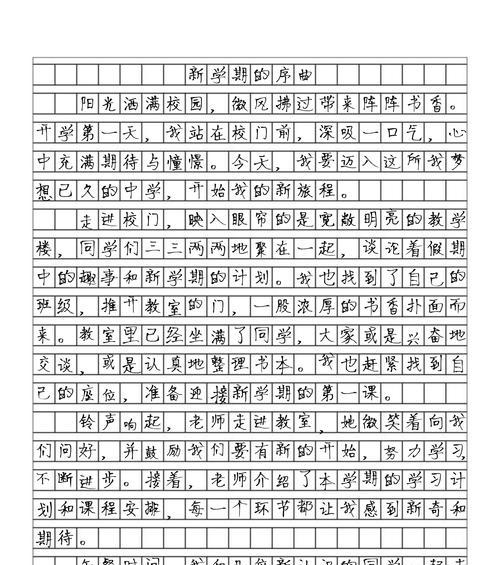 新学期的序曲
阳光洒满校园，微风拂过带来阵阵书香。
开学第一天，我站在校门前，深吸一口气，心
中充满期待与憧憬。今天，我要迈入这所我梦
想已久的中学，开始我的新旅程。
走进校门，映入眼帘的是宽敞明亮的教学
楼，同学们三三两两地聚在一起，谈论着假期
中的趣事和新学期的计划。我也找到了自己的
班级，推开教室的门，一股浓厚的书香扑面而
来。教室里已经坐满了同学，大家或是兴奋地
交谈，或是认真地整理书本。我也赶紧找到自
己的座位，准备迎接新学期的第一课。
铃声响起，老师走进教室，她微笑着向我
们问好，并鼓励我们要有新的开始，努力学习，
不断进步。接着，老师介绍了本学期的学习计
划和课程安排，每一个环节都让我感到新奇和
期待。